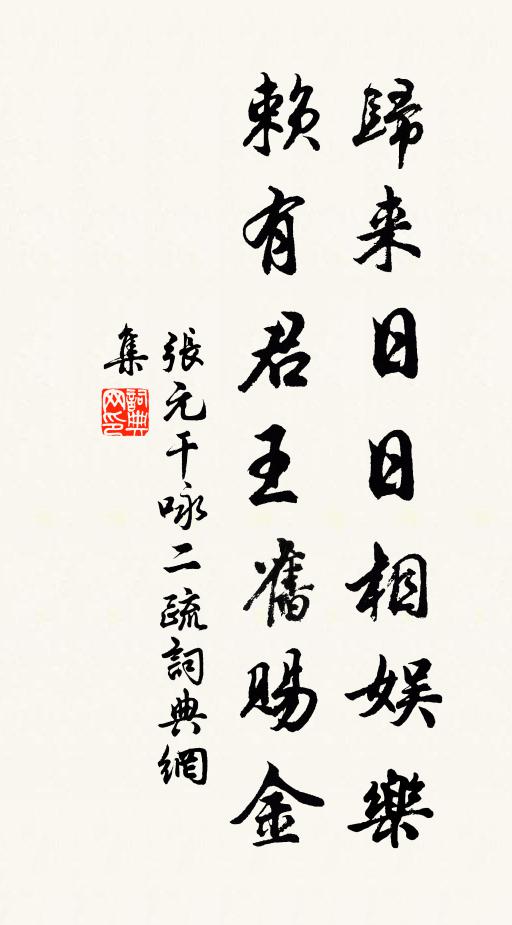 歸来日日相娱樂
賴有君王舊賜金
張元干咏二疏詞典網
集
詞典
网印